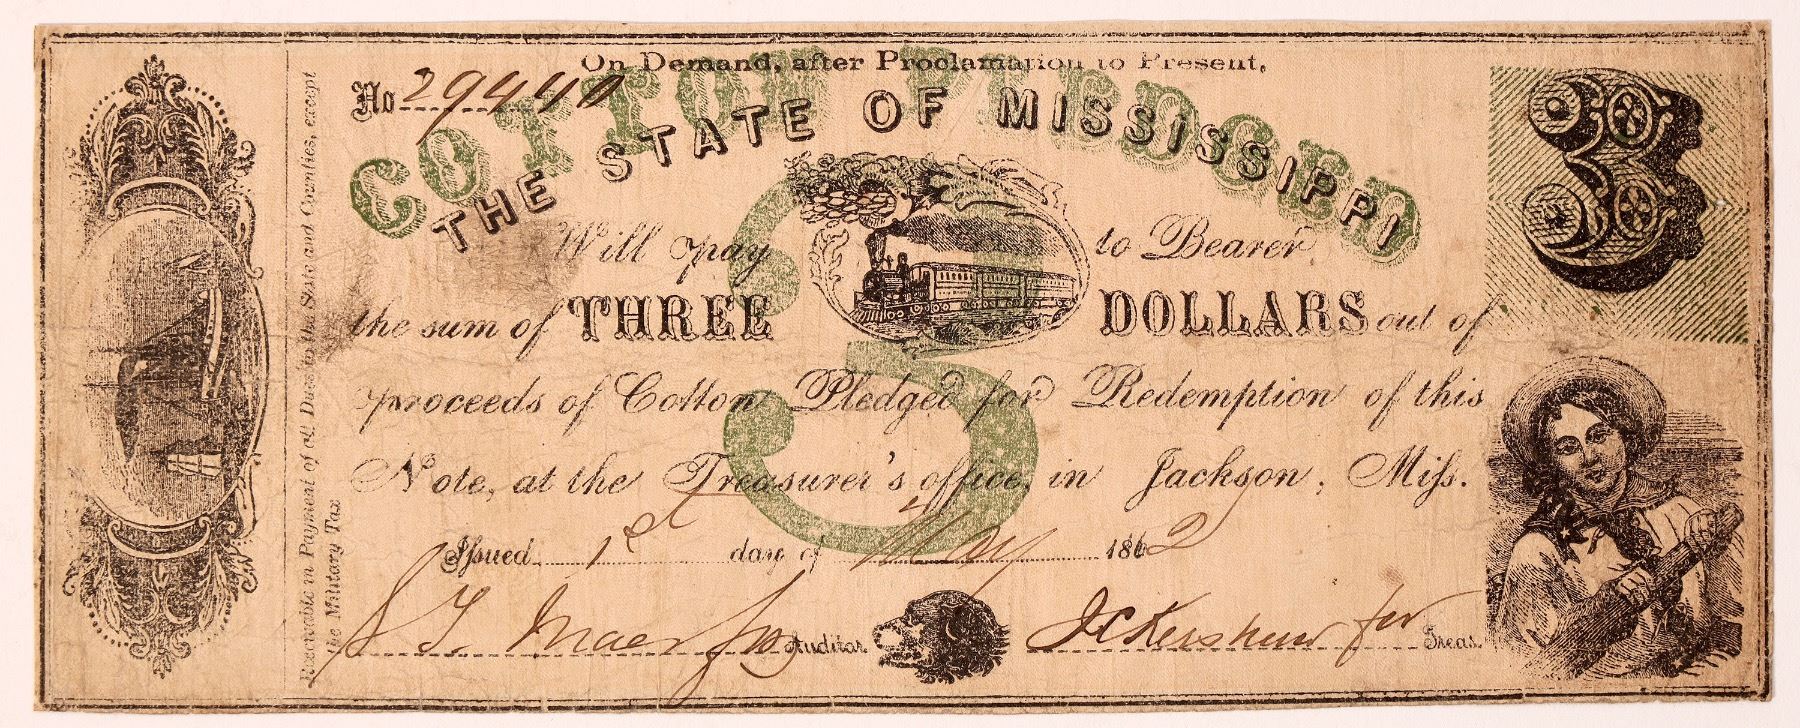 On Demand, after Proclamation to Present,
No 29440
COTTON PLEDGED
THE STATE OF MISSISSIPPI
3
Will pay to Bearer
the sum of THREE DOLLARS out of
proceeds of Cotton Pledged for Redemption of this
Note, at the Treasurer's office, in Jackson, Miſs.
Iſsued 1st day of May 1862
Auditor
for Treas.
3
Receivable in Payment of all Dues to the State and Counties, except
the Military Tax